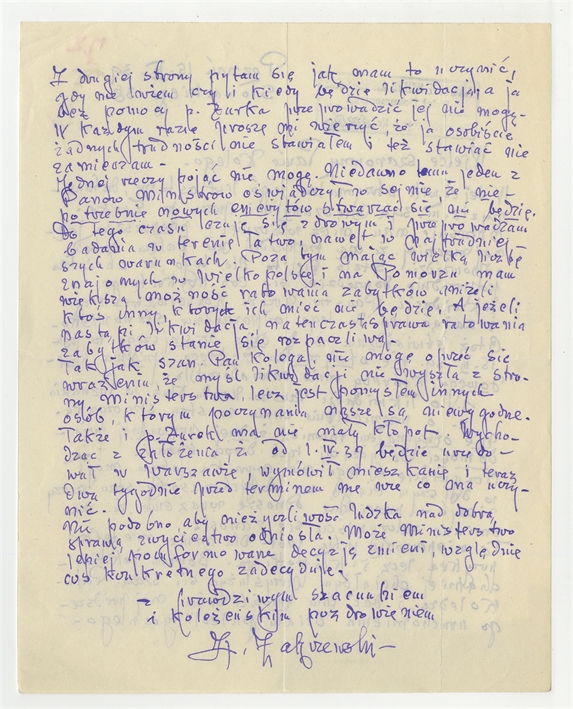 Z drugiej strony pytam się jak mam to uczynić,
gdy nie wiem czy li kiedy będzie likwidacja, a ja
bez pomocy p. Żurka przeprowadzić jej nie mogę.
W każdym razie proszę mi wierzyć, że ja osobiście
żadnych trudności nie stawiałem i też stawiać nie
zamierzam -
Jednej rzeczy pojąć nie mogę. Niedawno temu jeden z
Panów Ministrów oświadczył w sejmie, że nie-
potrzebnie nowych emerytów stwarzać się nie będzie.
Do tego czasu czuję się zdrowym i przeprowadzam
badania w terenie łatwo, nawet w najtrudniej-
szych warunkach. Poza tym mając wielką liczbę
znajomych w Wielkopolsce i na Pomorzu mam
większą możność ratowania zabytków aniżeli
ktoś inny, których ich mieć nie będzie. A jeżeli
nastąpi likwidacja, natenczas sprawa ratowania
zabytków stanie się rozpaczliwa -
Tak jak Szan. Pan Kolega, nie mogę oprzeć się
wrażeniu, że myśl likwidacji nie wyszła z stro-
ny Ministerstwa lecz jest pomysłem innych
osób, którym poczynania nasze są niewygodne.
Także i p. Żurek ma nie mały kłopot. Wycho-
dząc z założenia iż od 1. IV. 39 będzie urzędo-
wał w Warszawie, wymówił mieszkanie i teraz
dwa tygodnie przed terminem nie wie co ma uczy-
nić.
Nie podobno, aby nieżyczliwość ludzka nad dobrą
sprawą zwycięstwo odniosła. Może Ministerstwo
lepiej poinformowane decyzję zmieni względnie
coś konkretnego zadecyduje.
z prawdziwym szacunkiem
i koleżeńskim pozdrowieniem
Z. Zakrzewski -